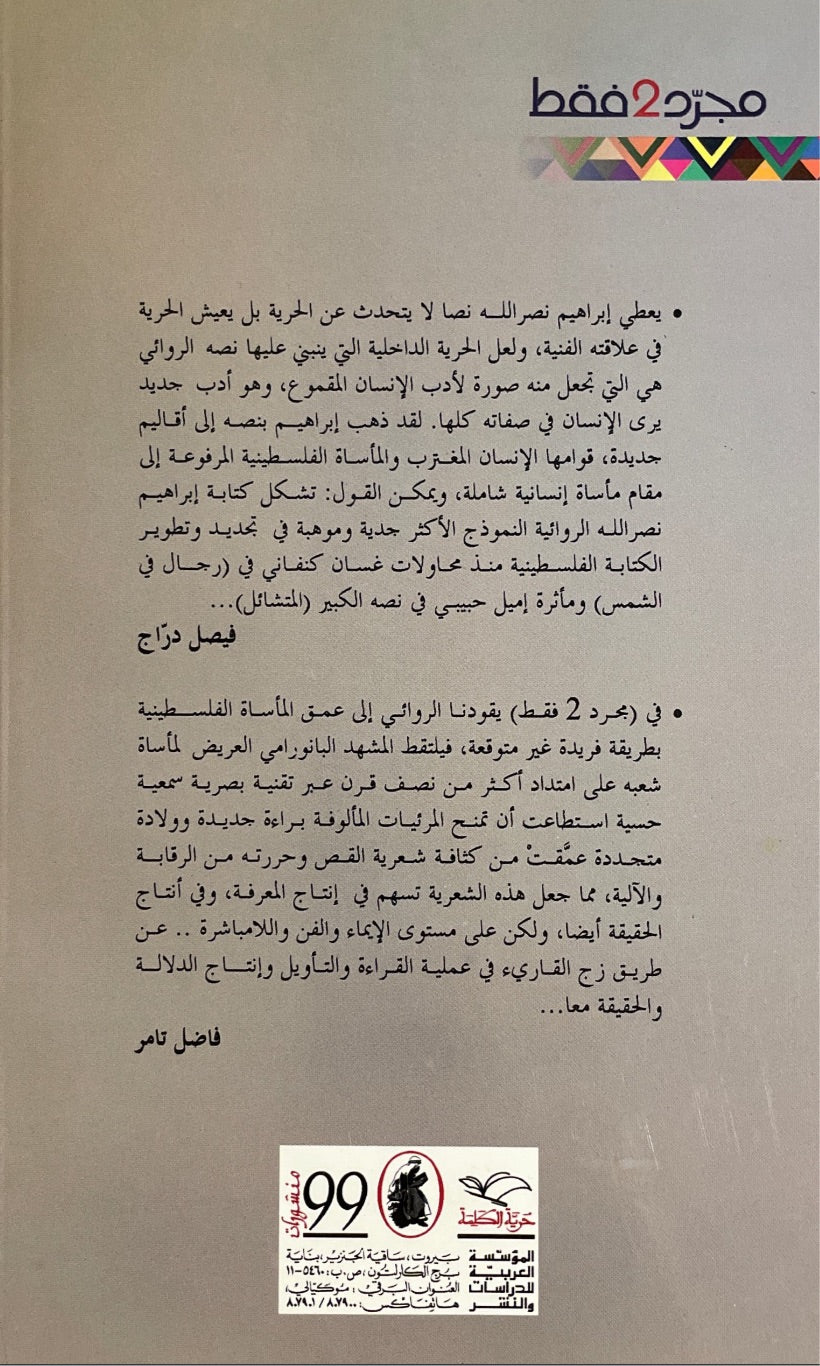 مجرّد 2 فقط
• يعطي إبراهيم نصرالله نصا لا يتحدث عن الحرية بل يعيش الحرية
في علاقته الفنية، ولعل الحرية الداخلية التي ينبني عليها نصه الروائي
هي التي تجعل منه صورة لأدب الإنسان المقموع، وهو أدب جديد
يرى الإنسان في صفاته كلها. لقد ذهب إبراهيم بنصه إلى أقاليم
جديدة، قوامها الإنسان المغترب والمأساة الفلسطينية المرفوعة إلى
مقام مأساة إنسانية شاملة، ويمكن القول: تشكل كتابة إبراهيم
نصرالله الروائية النموذج الأكثر جدية وموهبة في تجديد وتطوير
الكتابة الفلسطينية منذ محاولات غسان كنفاني في (رجال في
الشمس) ومأثرة إميل حبيبي في نصه الكبير (المتشائل)...
فيصل درّاج
• في (مجرد 2 فقط) يقودنا الروائي إلى عمق المأساة الفلسطينية
بطريقة فريدة غير متوقعة، فيلتقط المشهد البانورامي العريض لمأساة
شعبه على امتداد أكثر من نصف قرن عبر تقنية بصرية سمعية
حسية استطاعت أن تمنح المرئيات المألوفة براءة جديدة وولادة
متجددة عمَّقتْ من كثافة شعرية القص وحررته من الرقابة
والآلية، مما جعل هذه الشعرية تسهم في إنتاج المعرفة، وفي أنتاج
الحقيقة أيضا، ولكن على مستوى الإيماء والفن واللامباشرة .. عن
طريق زج القاريء في عملية القراءة والتأويل وإنتاج الدلالة
والحقيقة معا...
فاضل تامر
حرية الكلمة
منشورات 99
المؤسسة
العربية
للدراسات
والنشر
بيروت، ساقية الجنزير، بناية
برج الكارلتون، ص.ب: ٥٤٦٠-١١
العنوان البرقي: موكيالي،
هاتفاكس: ٨٠٧٩٠٠ / ٨٠٧٩٠١